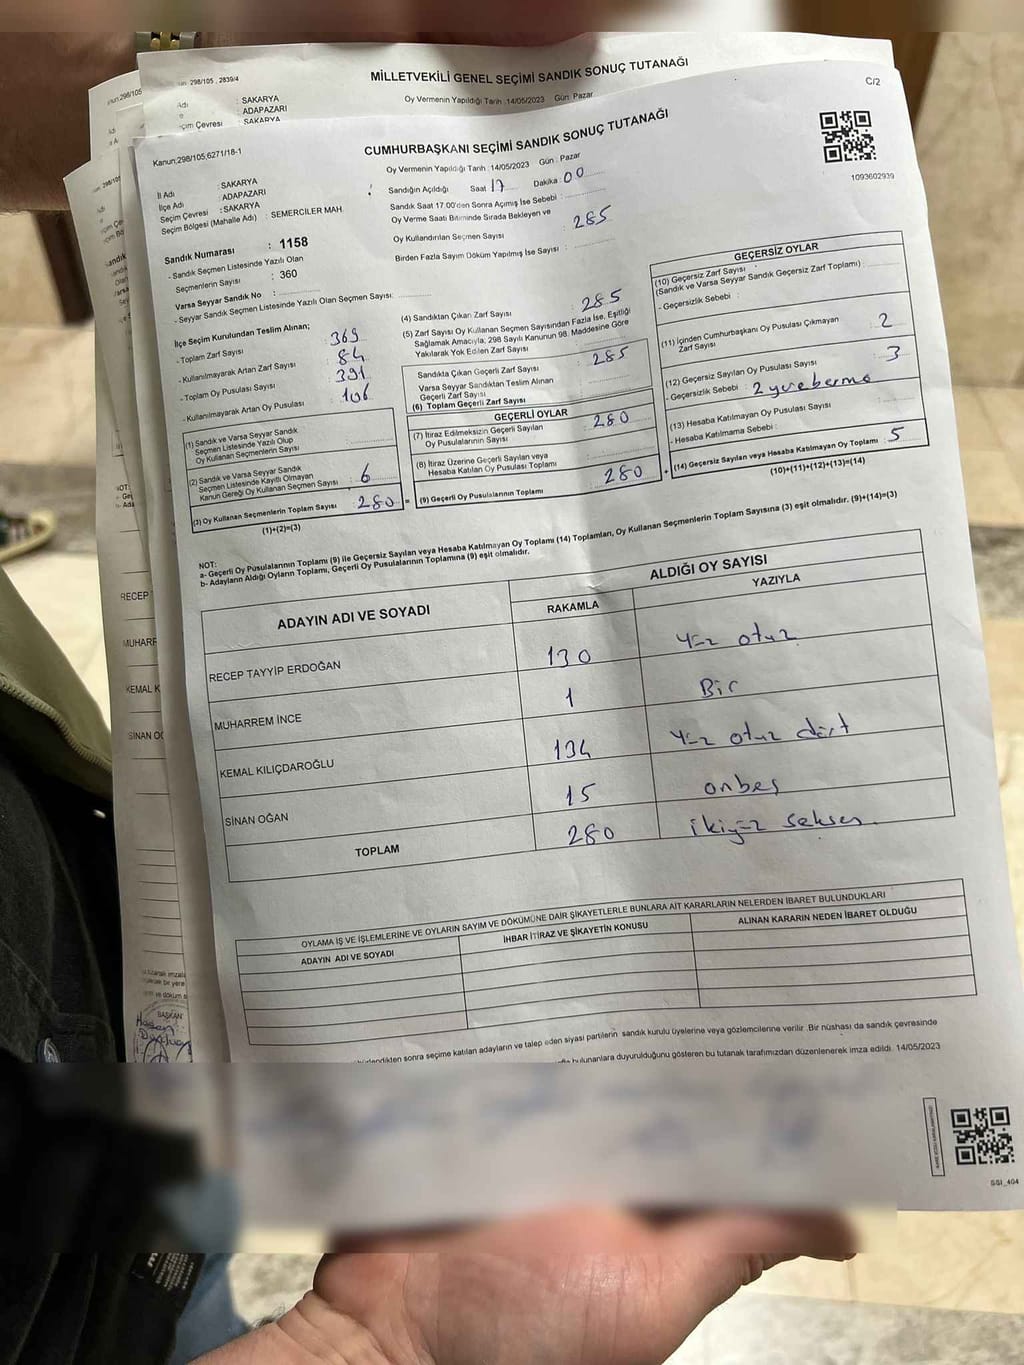 un: 298/105 , 2839/4
MİLLETVEKİLİ GENEL SEÇİMİ SANDIK SONUÇ TUTANAĞI
Oy Vermenin Yapıldığı Tarih :14/05/2023 Gün: Pazar
: SAKARYA
ADAPAZARI
: SAKARYA
C/2
Kanun;298/105;6271/18-1
CUMHURBAŞKANI SEÇİMİ SANDIK SONUÇ TUTANAĞI
Oy Vermenin Yapıldığı Tarih :14/05/2023 Gün : Pazar
1093602939
İl Adı : SAKARYA
İlçe Adı : ADAPAZARI
Seçim Çevresi : SAKARYA
Seçim Bölgesi (Mahalle Adı) : SEMERCİLER MAH.
Sandık Numarası : 1158
- Sandık Seçmen Listesinde Yazılı Olan
Seçmenlerin Sayısı : 360
Varsa Seyyar Sandık No :
- Seyyar Sandık Seçmen Listesinde Yazılı Olan Seçmen Sayısı:
Sandığın Açıldığı Saat 17 Dakika: 00
Sandık Saat 17.00'den Sonra Açılmış İse Sebebi :
Oy Verme Saati Bitiminde Sırada Bekleyen ve
Oy Kullandırılan Seçmen Sayısı : 285
Birden Fazla Sayım Döküm Yapılmış İse Sayısı :
İlçe Seçim Kurulundan Teslim Alınan;
- Toplam Zarf Sayısı : 369
- Kullanılmayarak Artan Zarf Sayısı : 84
- Toplam Oy Pusulası Sayısı : 391
- Kullanılmayarak Artan Oy Pusulası : 106
(1) Sandık ve Varsa Seyyar Sandık
Seçmen Listesinde Yazılı Olup
Oy Kullanan Seçmenlerin Sayısı
(2) Sandık ve Varsa Seyyar Sandık
Seçmen Listesinde Kayıtlı Olmayan
Kanun Gereği Oy Kullanan Seçmen Sayısı : 6
(3) Oy Kullanan Seçmenlerin Toplam Sayısı : 280
(1)+(2)=(3)
(4) Sandıktan Çıkan Zarf Sayısı : 285
(5) Zarf Sayısı Oy Kullanan Seçmen Sayısından Fazla İse, Eşitliği
Sağlamak Amacıyla; 298 Sayılı Kanunun 98. Maddesine Göre
Yakılarak Yok Edilen Zarf Sayısı
Sandıkta Çıkan Geçerli Zarf Sayısı : 285
Varsa Seyyar Sandıktan Teslim Alınan
Geçerli Zarf Sayısı
(6) Toplam Geçerli Zarf Sayısı
GEÇERLİ OYLAR
(7) İtiraz Edilmeksizin Geçerli Sayılan
Oy Pusulalarının Sayısı : 280
(8) İtiraz Üzerine Geçerli Sayılan veya
Hesaba Katılan Oy Pusulası Toplamı
= (9) Geçerli Oy Pusulalarının Toplamı : 280
GEÇERSİZ OYLAR
(10) Geçersiz Zarf Sayısı
(Sandık ve Varsa Seyyar Sandık Geçersiz Zarf Toplamı) :
- Geçersizlik Sebebi :
(11) İçinden Cumhurbaşkanı Oy Pusulası Çıkmayan
Zarf Sayısı : 2
(12) Geçersiz Sayılan Oy Pusulası Sayısı : 3
- Geçersizlik Sebebi : 2 yere basma
(13) Hesaba Katılmayan Oy Pusulası Sayısı :
- Hesaba Katılmama Sebebi :
+ (14) Geçersiz Sayılan veya Hesaba Katılmayan Oy Toplamı : 5
(10)+(11)+(12)+(13)=(14)
NOT:
a- Geçerli Oy Pusulalarının Toplamı (9) ile Geçersiz Sayılan veya Hesaba Katılmayan Oy Toplamı (14) Toplamları, Oy Kullanan Seçmenlerin Toplam Sayısına (3) eşit olmalıdır. (9)+(14)=(3)
b- Adayların Aldığı Oyların Toplamı, Geçerli Oy Pusulalarının Toplamına (9) eşit olmalıdır.
ADAYIN ADI VE SOYADI
ALDIĞI OY SAYISI
RAKAMLA YAZIYLA
RECEP TAYYİP ERDOĞAN 130 yüz otuz
MUHARREM İNCE 1 Bir
KEMAL KILIÇDAROĞLU 134 yüz otuz dört
SİNAN OĞAN 15 onbeş
TOPLAM 280 ikiyüz seksen
OYLAMA İŞ VE İŞLEMLERİNE VE OYLARIN SAYIM VE DÖKÜMÜNE DAİR ŞİKAYETLERLE BUNLARA AİT KARARLARIN NELERDEN İBARET BULUNDUKLARI
ADAYIN ADI VE SOYADI İHBAR İTİRAZ VE ŞİKAYETİN KONUSU ALINAN KARARIN NEDEN İBARET OLDUĞU
sonra seçime katılan adayların ve talep eden siyasi partilerin sandık kurulu üyelerine veya gözlemcilerine verilir .Bir nüshası da sandık çevresinde
bulunanlara duyurulduğunu gösteren bu tutanak tarafımızdan düzenlenerek imza edildi. 14/05/2023
RECEP
MUHARF
KEMAL K
SİNAN OĞ
BAŞKAN
SSI_404